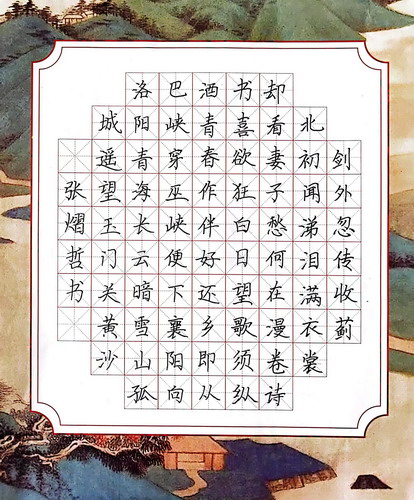 剑外忽传收蓟
北初闻涕泪满衣裳
却看妻子愁何在漫卷诗
书喜欲狂白日望歌须纵
酒青春作伴好还乡即从
巴峡穿巫峡便下襄阳向
洛阳青海长云暗雪山孤
城遥望玉门关黄沙
张熠哲书